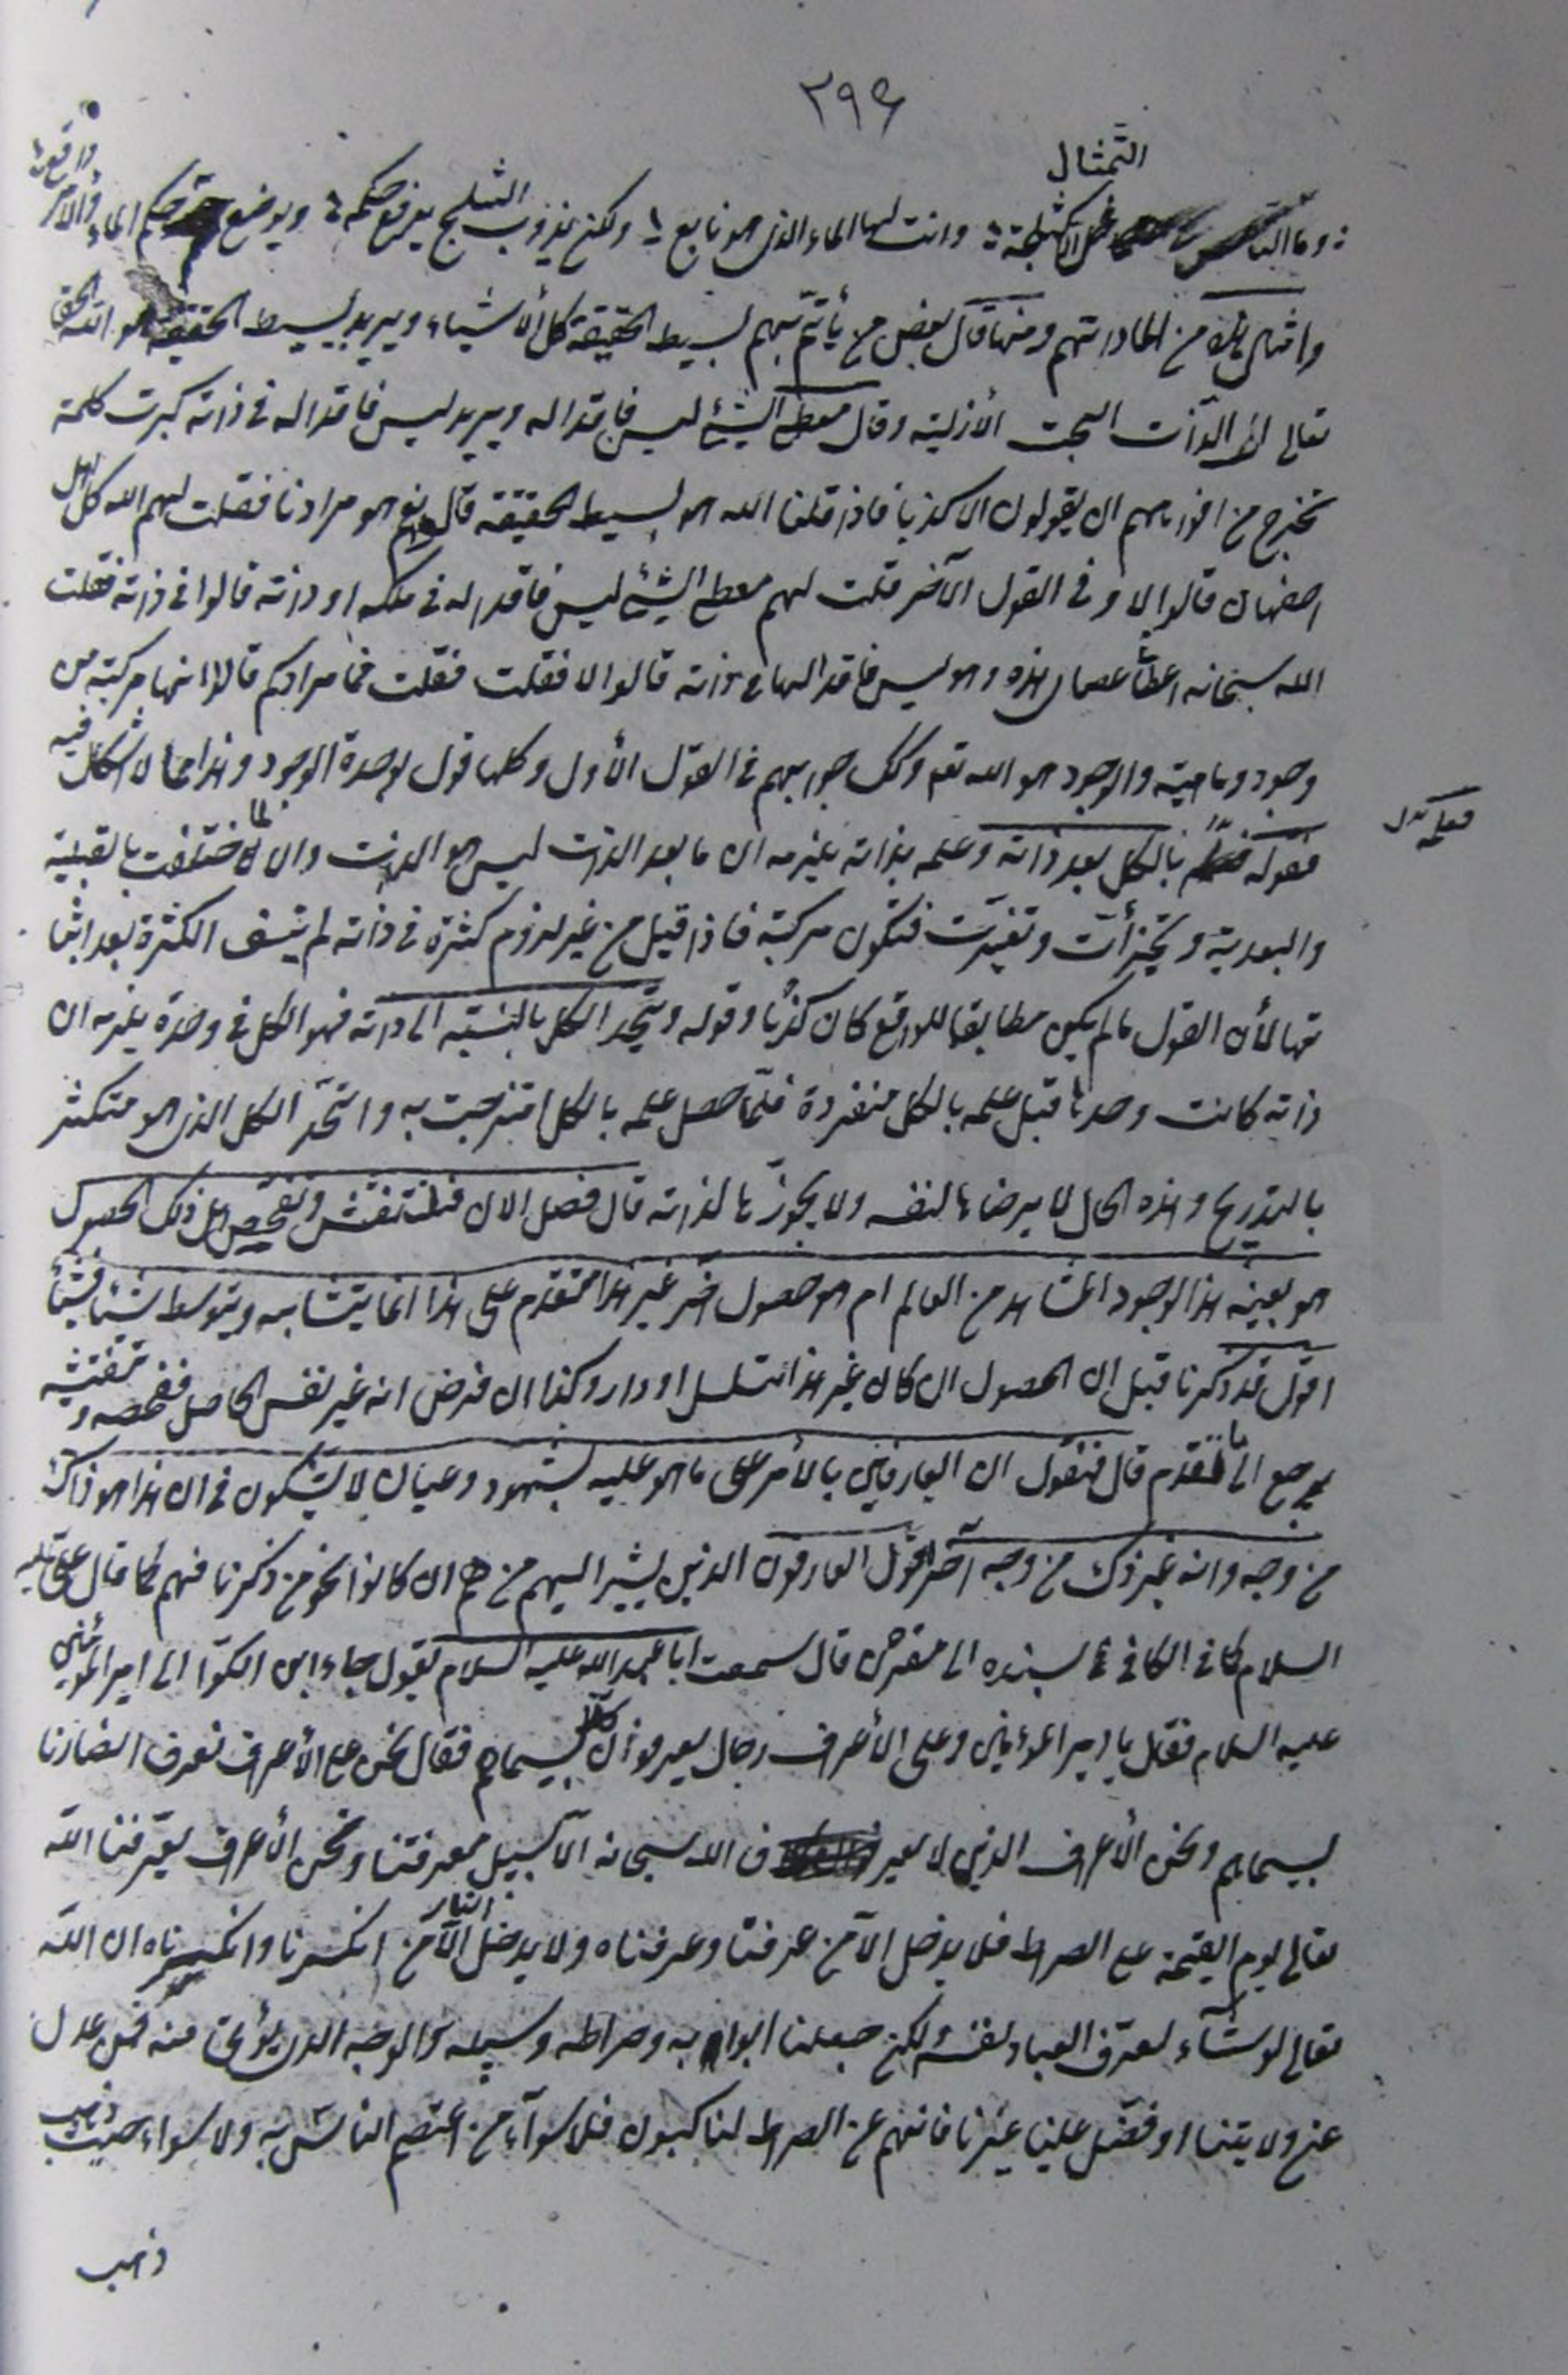 ٢٩٦
التمثال
وما الناس في الا كثلجة وانت لها الماء الذي هو نابع ولكن بذوب الثلج يرفع حكمه ويوضع حكم الماء والأمر واقع
وامثال ذلك من عباراتهم ومنها قال بعض من يأتم بهم بسيط الحقيقة كل الأشياء ويريد ببسيط الحقيقة هو الله الحق
تعالى الذات البحت الأزلية وقال معطي الشيء ليس فاقدا له ويريد ليس فاقدا له في ذاته كبرت كلمة
تخرج من افواههم ان يقولون الا كذبا فاذا قلنا الله هو بسيط الحقيقة قال نعم هو مرادنا فقلت لهم الله كل اهل
اصفهان قالوا لا وفي القول الآخر قلت لهم معطي الشيء ليس فاقدا له في ملكه او ذاته قالوا في ذاته فقلت
الله سبحانه اعطا عصاي هذه وهو ليس فاقدا لها في ذاته قالوا لا فقلت فما مرادكم قالوا انها مركبة من
وجود وماهية والوجود هو الله تعه وكك جوابهم في القول الأول وكلها قول بوحدة الوجود وهذا مما لا شك فيه
فقوله بالكل بعد ذاته وعلمه بذاته يلزمه ان ما بعد الذات ليس هو الذات والا لما اختلفت بالقبلية
فعلمه
والبعدية وتجزأت وتغيرت فتكون مركبة فاذا قيل من غير لزوم كثرة في ذاته لم تنتف الكثرة بعد اثبا
تها لأن القول ما لم يكن مطابقا للواقع كان كذبا وقوله ويتحد الكل بالنسبة الى ذاته فهو الكل في وحدة يلزمه ان
ذاته كانت وحدها قبل علمه بالكل منفردة فلما حصل علمه بالكل امتزجت به واتحد الكل الذي هو متكثر
بالتدريج وهذه الحال لا يرضاها لنفسه ولا يجوزها لذاته قال فصل الان فلنفتش ونفحص هل ذلك الحصول
هو بعينه هذا الوجود المشاهد من العالم ام هو حصول اخر غير هذا متقدم على هذا انما يتشابه ويتوسط شيئا فشيئا
اقول قد ذكرنا قبل ان الحصول ان كان غير هذا تسلسل او دار وكذا ان فرض انه غير نفس الحاصل ففحصه وتفتيشه
يرجع الى ما تقدم قال فنقول ان العارفين بالأمر على ما هو عليه بشهود وعيان لا يشكون في ان هذا هو ذاك
من وجه وانه غير ذلك من وجه آخر اقول العارفون الذين يشير اليهم من هم ان كانوا نحو من ذكرنا فهم كما قال علي عليه
السلام كما في الكافي بسنده الى مقرن قال سمعت ابا عبد الله عليه السلام يقول جاء ابن الكوا الى امير المؤمنين
عليه السلام فقال يا امير المؤمنين وعلى الأعراف رجال يعرفون كلا بسيماهم فقال نحن على الأعراف نعرف انصارنا
بسيماهم ونحن الأعراف الذين لا يعرف الله سبحانه الا بسبيل معرفتنا ونحن الأعراف يعرفنا الله
تعالى يوم القيمة على الصراط فلا يدخل الا من عرفنا وعرفناه ولا يدخل النار الا من انكرنا وانكرناه ان الله
تعالى لو شاء لعرف العباد نفسه ولكن جعلنا ابوابه وصراطه وسبيله والوجه الذي يؤتى منه فمن عدل
عن ولايتنا او فضل علينا غيرنا فانهم عن الصراط لناكبون فلا سواء من اعتصم الناس به ولا سواء حيث ذهب
ذهب